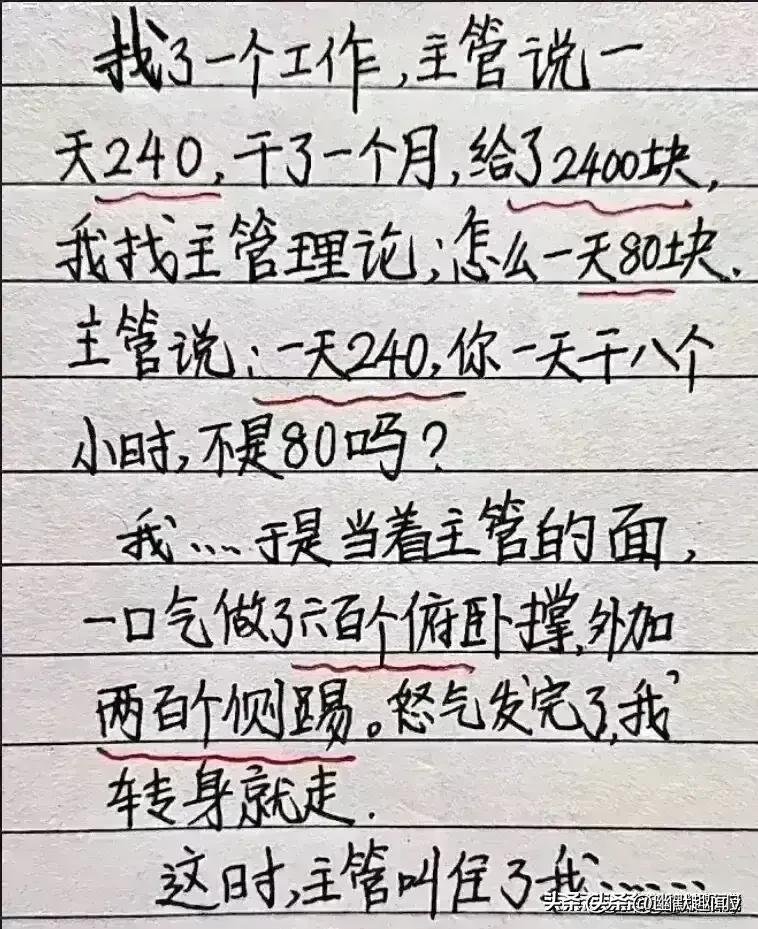 找了一个工作,主管说一
天240,干了一个月,给了2400块,
我找主管理论;怎么一天80块.
主管说:一天240,你一天干八个
小时,不是80吗?
我……于是当着主管的面,
一口气做了六百个俯卧撑,外加
两百个侧踢。怒气发完了,我
转身就走.
这时,主管叫住了我……
头条@幽默趣闻